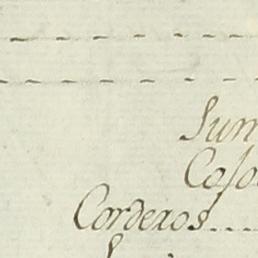 Sum
Caso
Corderos....